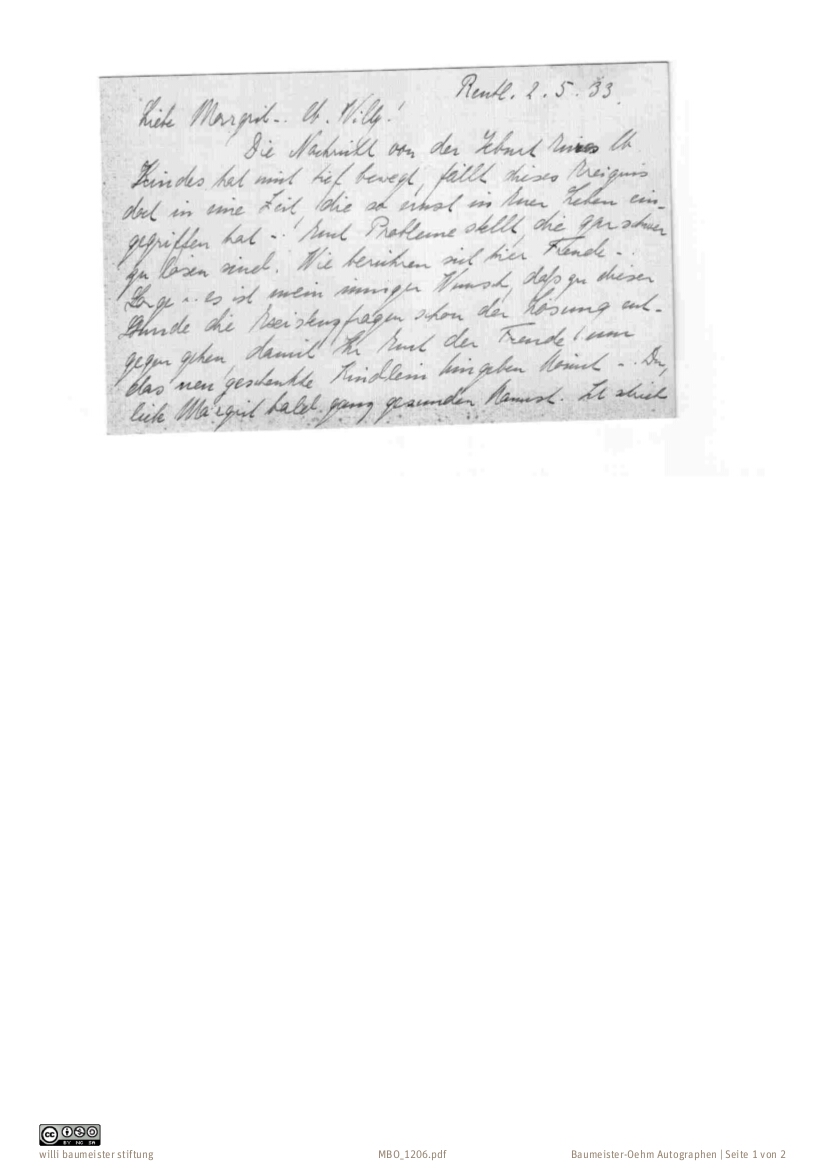 Reutl. 2. 5. 33.
Liebe Margrit - u. lb. Willy!
Die Nachricht von der Geburt Eures lb.
Kindes hat mich tief bewegt, fällt dieses Ereignis
doch in eine Zeit, die so ernst in Euer Leben ein-
gegriffen hat - . Euch Probleme stellt, die gar schwer
zu lösen sind. Wie berühren sich hier Freude - .
Sorge - . es ist mein inniger Wunsch, daß zu dieser
Stunde die Existenzfragen schon der Lösung ent-
gegen gehen damit Ihr Euch der Freude um
das neu geschenkte Kindlein hingeben könnt - . Du,
lieb Margrit bald ganz gesunden kannst. Es
BY NC SA
willi baumeister stiftung
MBO_1206.pdf
Baumeister-Oehm Autographen | Seite 1 von 2